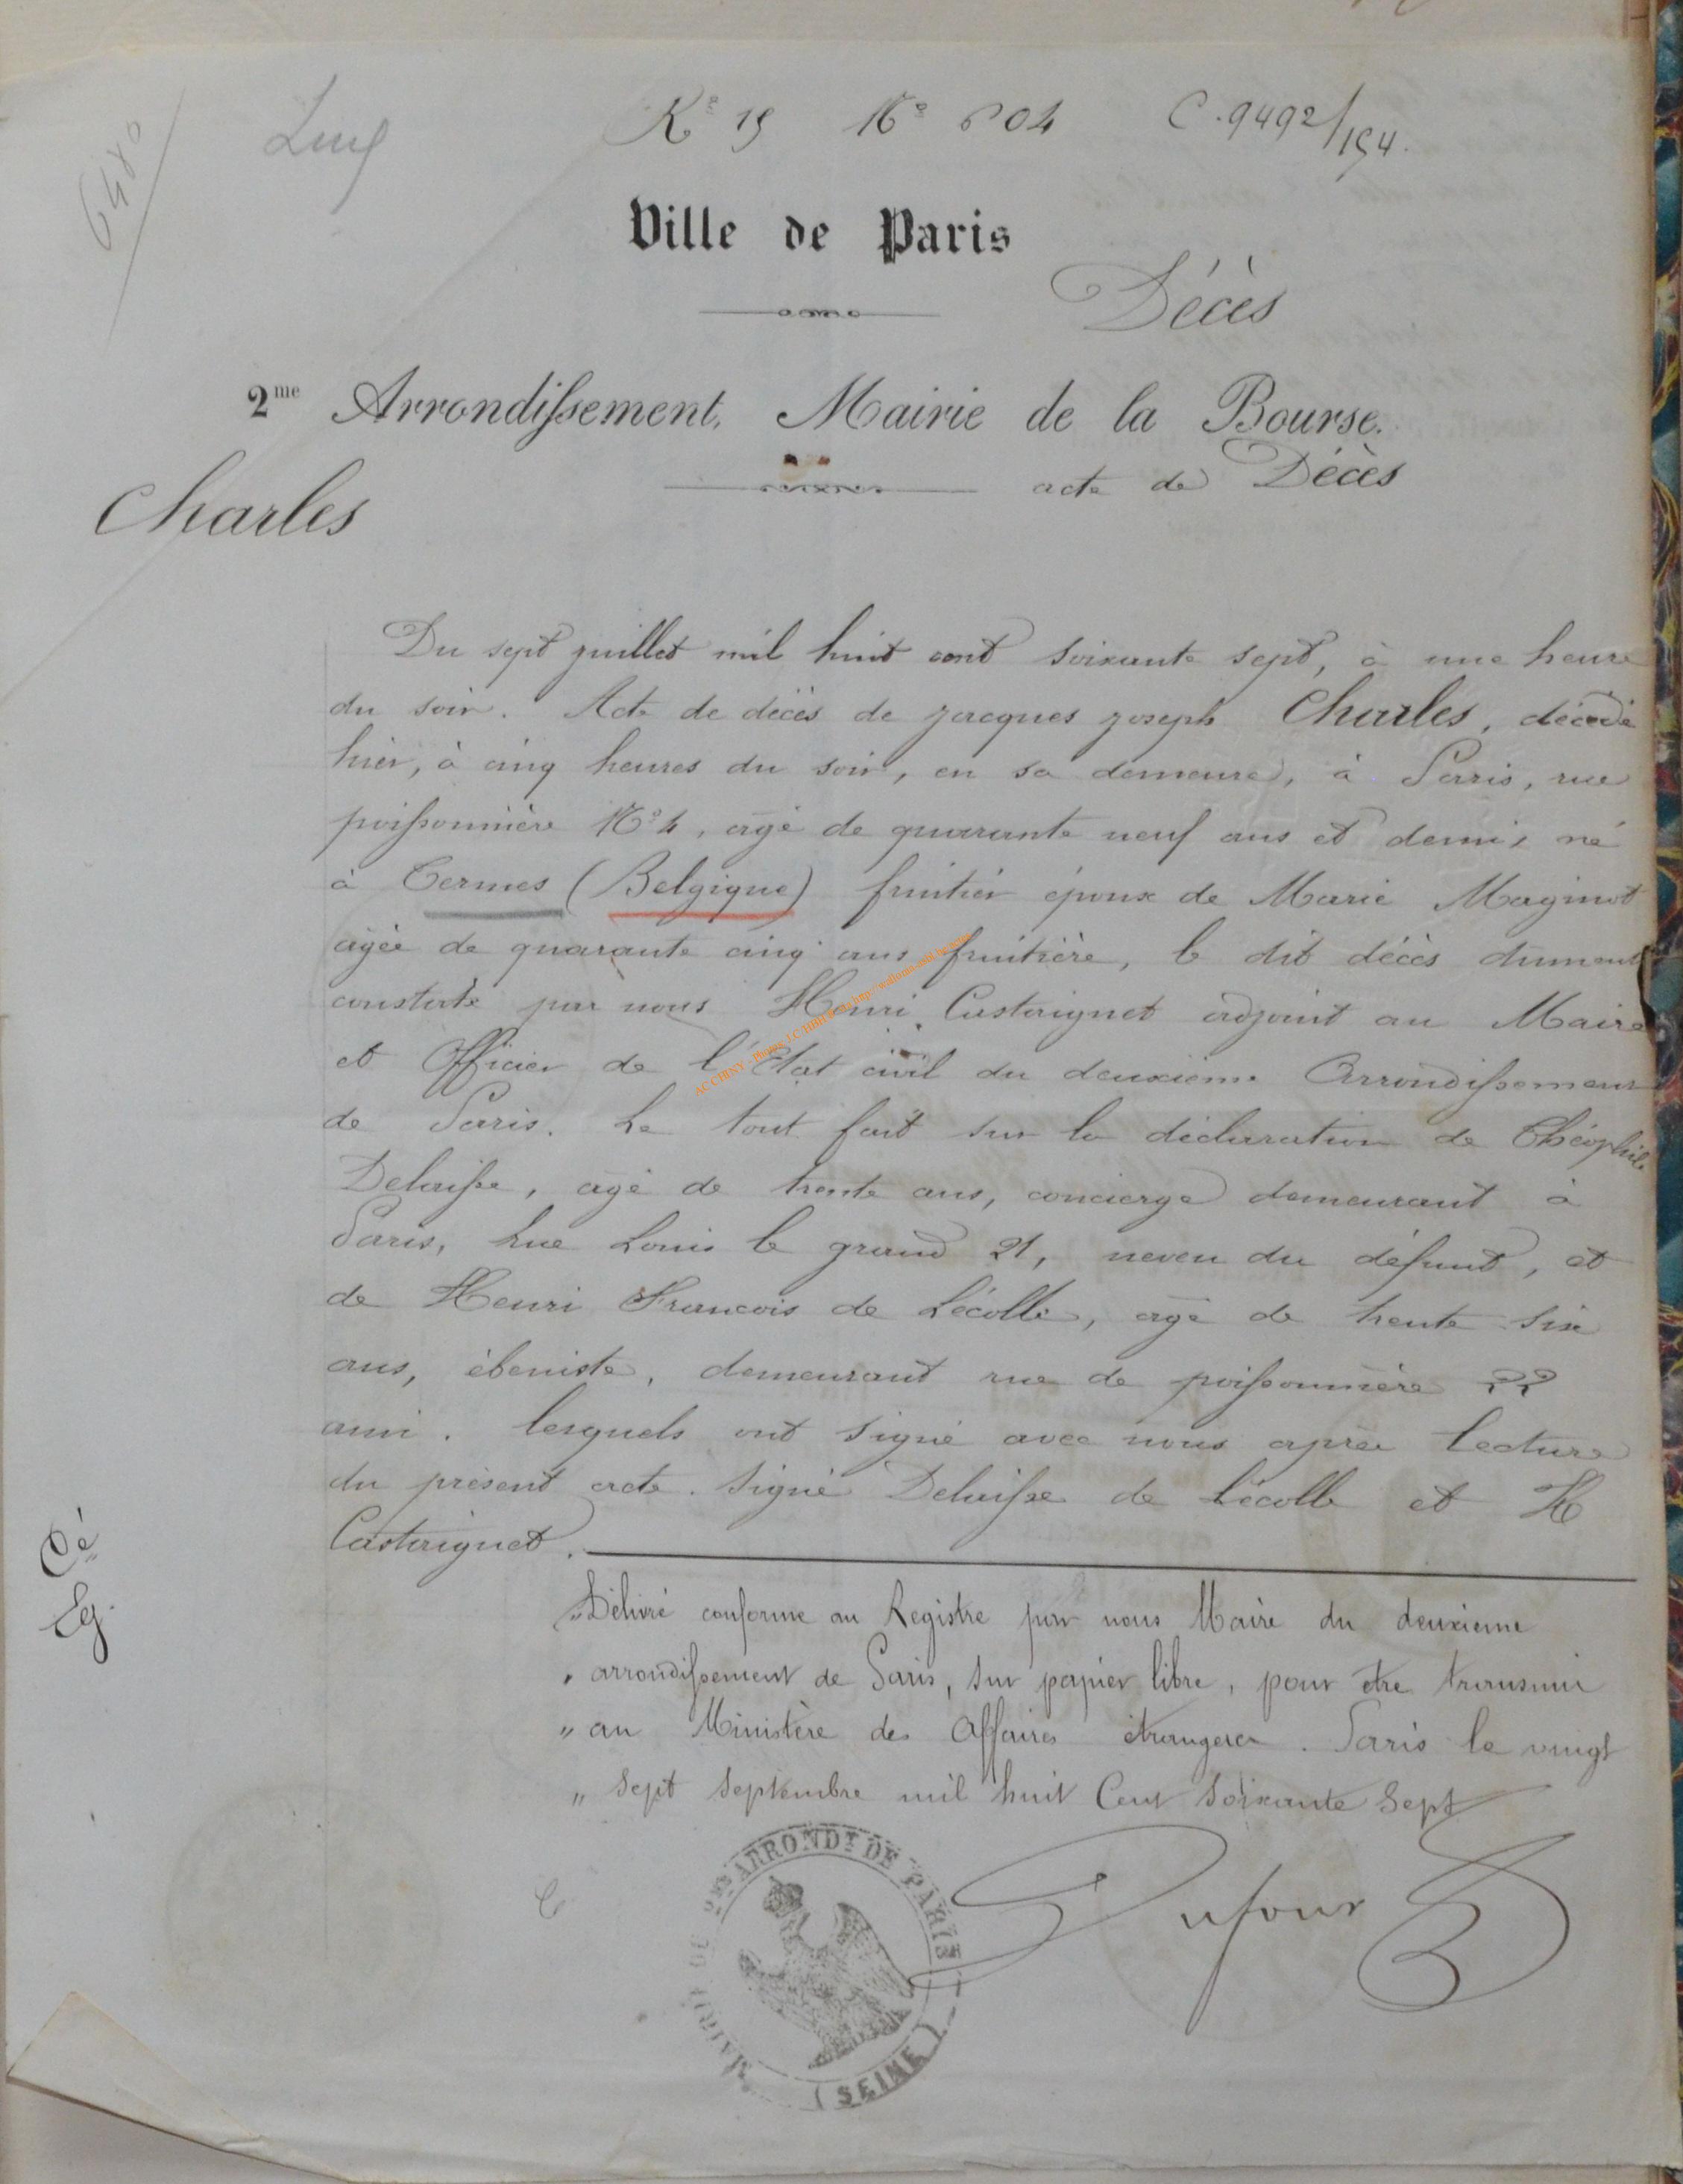 6480
Lux
Rº 15 Nº 604 C. 9492/154.
Ville de Paris
Décès
2me Arrondissement, Mairie de la Bourse.
acte de Décès
Charles
Du sept juillet mil huit cent soixante sept, à une heure
du soir. Acte de décès de jacques joseph Charles, décédé
hier, à cinq heures du soir, en sa demeure, à Paris, rue
poissonnière Nº 4, agé de quarante neuf ans et demi, né
à Termes (Belgique) fruitier époux de Marie Maginot
agée de quarante cinq ans fruitière, le dit décès dument
constaté par nous Henri Castaignet adjoint au Maire
et Officier de l'Etat civil du deuxième Arrondissement
de Paris. Le tout fait sur la déclaration de Théophile
Delaisse, agé de trente ans, concierge demeurant à
Paris, rue Louis le grand 21, neveu du défunt, et
de Henri Francois de Lécolle, agé de trente six
ans, ébeniste, demeurant rue de poissonnière 22
ami. lesquels ont signé avec nous après lecture
du présent acte. signé Delaisse de Lécolle et H
Castaignet.
Cé
Eg.
"Délivré conforme au Registre par nous Maire du deuxieme
" arrondissement de Paris, sur papier libre, pour etre transmis
" au Ministère des Affaires étrangeres. Paris le vingt
" sept septembre mil huit Cent soixante Sept
Dufour
MAIRIE DU 2ME ARRONDT DE PARIS
(SEINE)